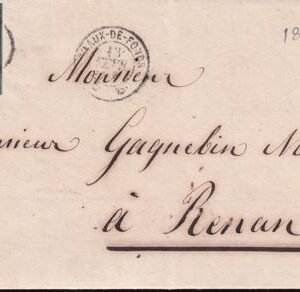 18
AUX-DE-FONDS
13
Monsieur
nsieur Gagnebin No
à Renan